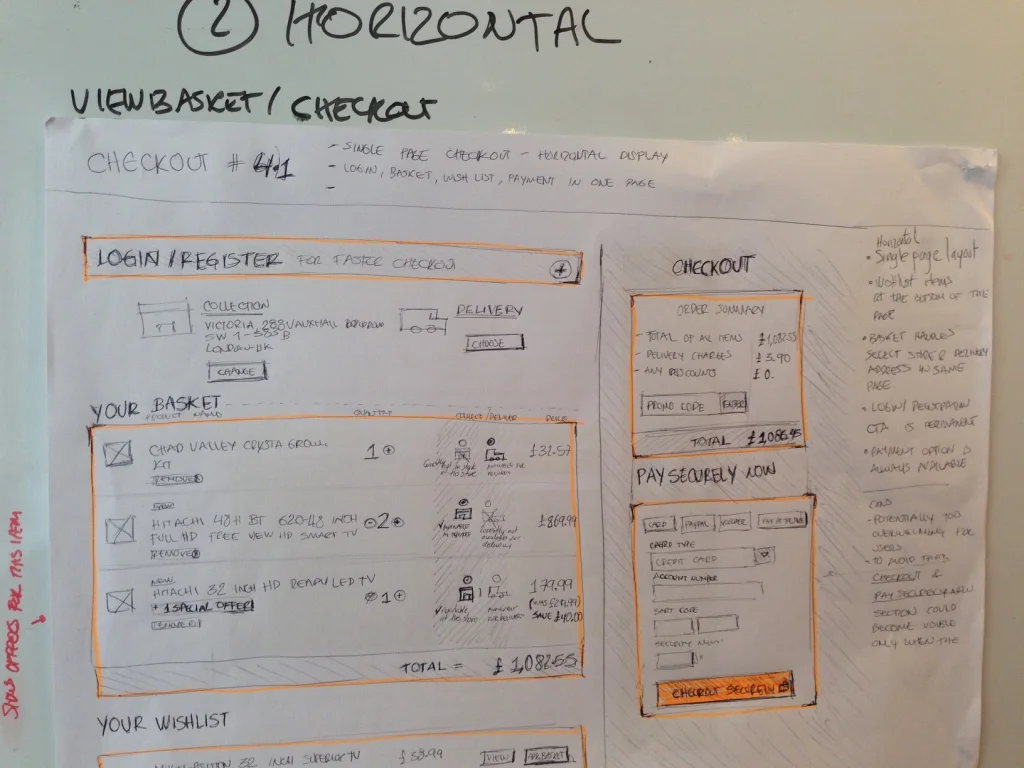 2 HORIZONTAL
VIEWBASKET / CHECKOUT
CHECKOUT # 4.1
- SINGLE PAGE CHECKOUT - HORIZONTAL DISPLAY
- LOGIN, BASKET, WISH LIST, PAYMENT IN ONE PAGE
-
LOGIN / REGISTER FOR FASTER CHECKOUT +
COLLECTION
VICTORIA, 288 VAUXHALL
LONDON-UK
CHANGE
DELIVERY
CHOOSE
YOUR BASKET
PRODUCT NAME QUANTITY COLLECT/DELIVER PRICE
CHAD VALLEY CRYSTA GROW
KIT
REMOVE
1 +
£32.57
HITACHI 48H BT 620-48 INCH
FULL HD FREE VIEW HD SMART TV
REMOVE
- 2 +
£869.99
NEW
HITACHI 32 INCH HD READY LED TV
+ 1 SPECIAL OFFER
REMOVE
1 +
179.99
SAVE £40.00
TOTAL = £1,082.55
YOUR WISHLIST
32 INCH SUPERIOR TV £38.99 VIEW
CHECKOUT
ORDER SUMMARY
- TOTAL OF ALL ITEMS £1,082.55
- DELIVERY CHARGES £3.90
- ANY DISCOUNTS £0.
PROMO CODE ENTER
TOTAL £1,086.45
PAY SECURELY NOW
CARD PAYPAL VOUCHER PAY IN STORE
CARD TYPE
CREDIT CARD
ACCOUNT NUMBER
SORT CODE
SECURITY
CHECKOUT SECURELY
Horizontal
• Single page layout
• Wishlist items
AT THE BOTTOM OF THE
PAGE
• BASKET
SELECT STORE & DELIVERY
ADDRESS IN SAME
PAGE
• LOGIN/
CTA IS PERMANENT
• PAYMENT OPTION IS
ALWAYS AVAILABLE
CONS
- POTENTIALLY TOO
FOR
USERS
- TO AVOID THAT,
CHECKOUT &
PAY SECURELY NOW
SECTION COULD
BECOME VISIBLE
ONLY WHEN THE
SHOW OFFERS FOR THIS ITEM